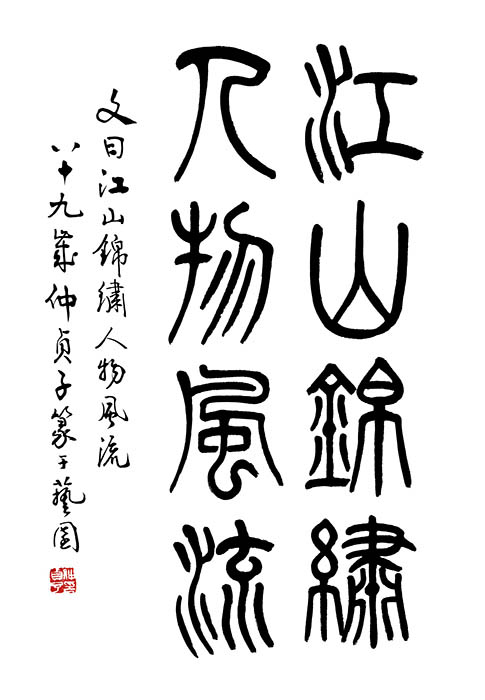 江山錦繡
人物風流
文曰江山錦繡人物風流
八十九歲仲貞子篆于藝園
仲貞子